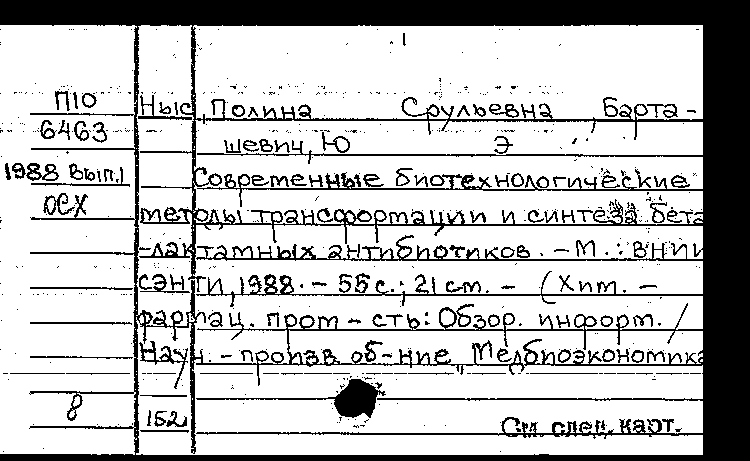 П10 Ныс, Полина Срульевна, Барта-
6463 шевич, Ю Э
1988 вып.1 Современные биотехнологические
ОСХ методы трансформации и синтеза бета
-лактамных антибиотиков. - М.: ВНИИ
сэнти, 1988. - 55 с.; 21 см. - (Хим. -
фармац. пром-сть: Обзор. информ. /
Науч. - произв. об-ние "Медбиоэкономика
8 152 См. след. карт.